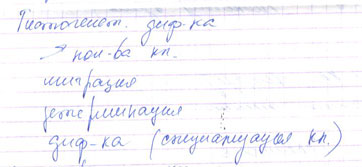 Гистогенет. диф-ка
↗ кол-ва кл.
миграция
детерминация
диф-ка (специализация кл.)